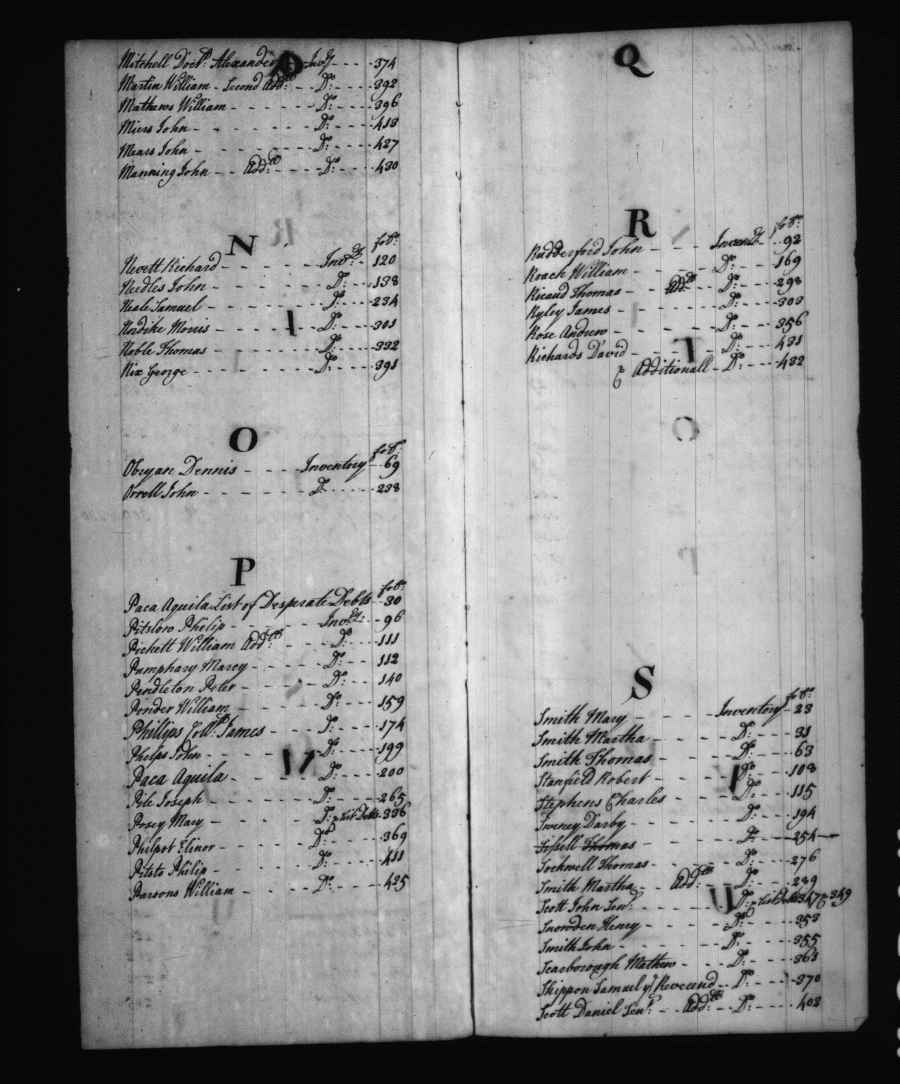 Mitchell Doctr. Alexander Invy 374
Martin William - Second Addll. - Do: - 392
Mathews William - Do: - 396
Miers John - Do: - 413
Mears John - Do: - 427
Manning John - Addll: - Do: - 430
N
fol:
Nevett Richard - Invty. - 120
Needles John - Do: - 138
Neale Samuel - Do: - 234
Nordike Morris - Do: - 301
Noble Thomas - Do: - 332
Nix George - Do: - 391
O
fol:
Obryan Dennis - Inventory - 69
Orrell John - Do: - 238
P
fol:
Paca Aquila List of Desperate Debts - 30
Pitslow Philip - Invty: - 96
Pickett William Addll: - Do: - 111
Pumphary Marey - Do: - 112
Pendleton Peter - Do: - 140
Ponder William - Do: - 159
Phillips Coll. James - Do: - 174
Phelps John - Do: - 199
Paca Aquila - Do: - 200
Pile Joseph - Do: - 265
Posey Mary - Do: & List Debts 336
Philpot Elinor - Do: - 369
Pitsto Philip - Do: - 411
Parsons William - Do: - 425
Q
R
fol:
Rudderford John - Inventy. - 92
Roach William - Do: - 169
Ricaud Thomas - Addll - Do: - 298
Ryley James - Do: - 303
Rose Andrew - Do: - 356
Richards David - Do: - 431
& Additionall - Do: - 432
S
fol:
Smith Mary - Inventory - 23
Smith Martha - Do: - 31
Smith Thomas - Do: - 63
Stanfield Robert - Do: - 108
Stephens Charles - Do: - 115
Sweney Darby - Do: - 194
Thomas - Do: - 254
Sockwell Thomas - Do: - 276
Smith Martha - Addll - Do: - 289
Scott John Senr. - Do: & List Debts 347 & 349
Snowden Henry - Do: - 353
Smith John - Do: - 355
Scarborough Mathew - Do: - 363
Skippon Samuel ye Reverend - Do: - 370
Scott Daniel Senr. - Addll - Do: - 402